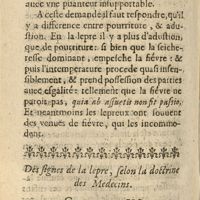 auec vne puanteur insupportable.
A ceste demande il faut respondre, qu'il
y a difference entre pourriture, & adu-
stion. En la lepre il y a plus d'adustion,
que de pourriture: si bien que la seiche-
resse dominante, empesche la fiévre: &
puis l'intemperature procede quasi insen-
siblement, & prend possession des parties
auec esgalité: tellement que la fiévre ne
paroist pas, quia ab assuetis non fit passio.
Et neantmoins les lepreux ont souuent
des venuës de fiévre, qui les incommo-
dent.
Des signes de la lepre, selon la doctrine
des Medecins.